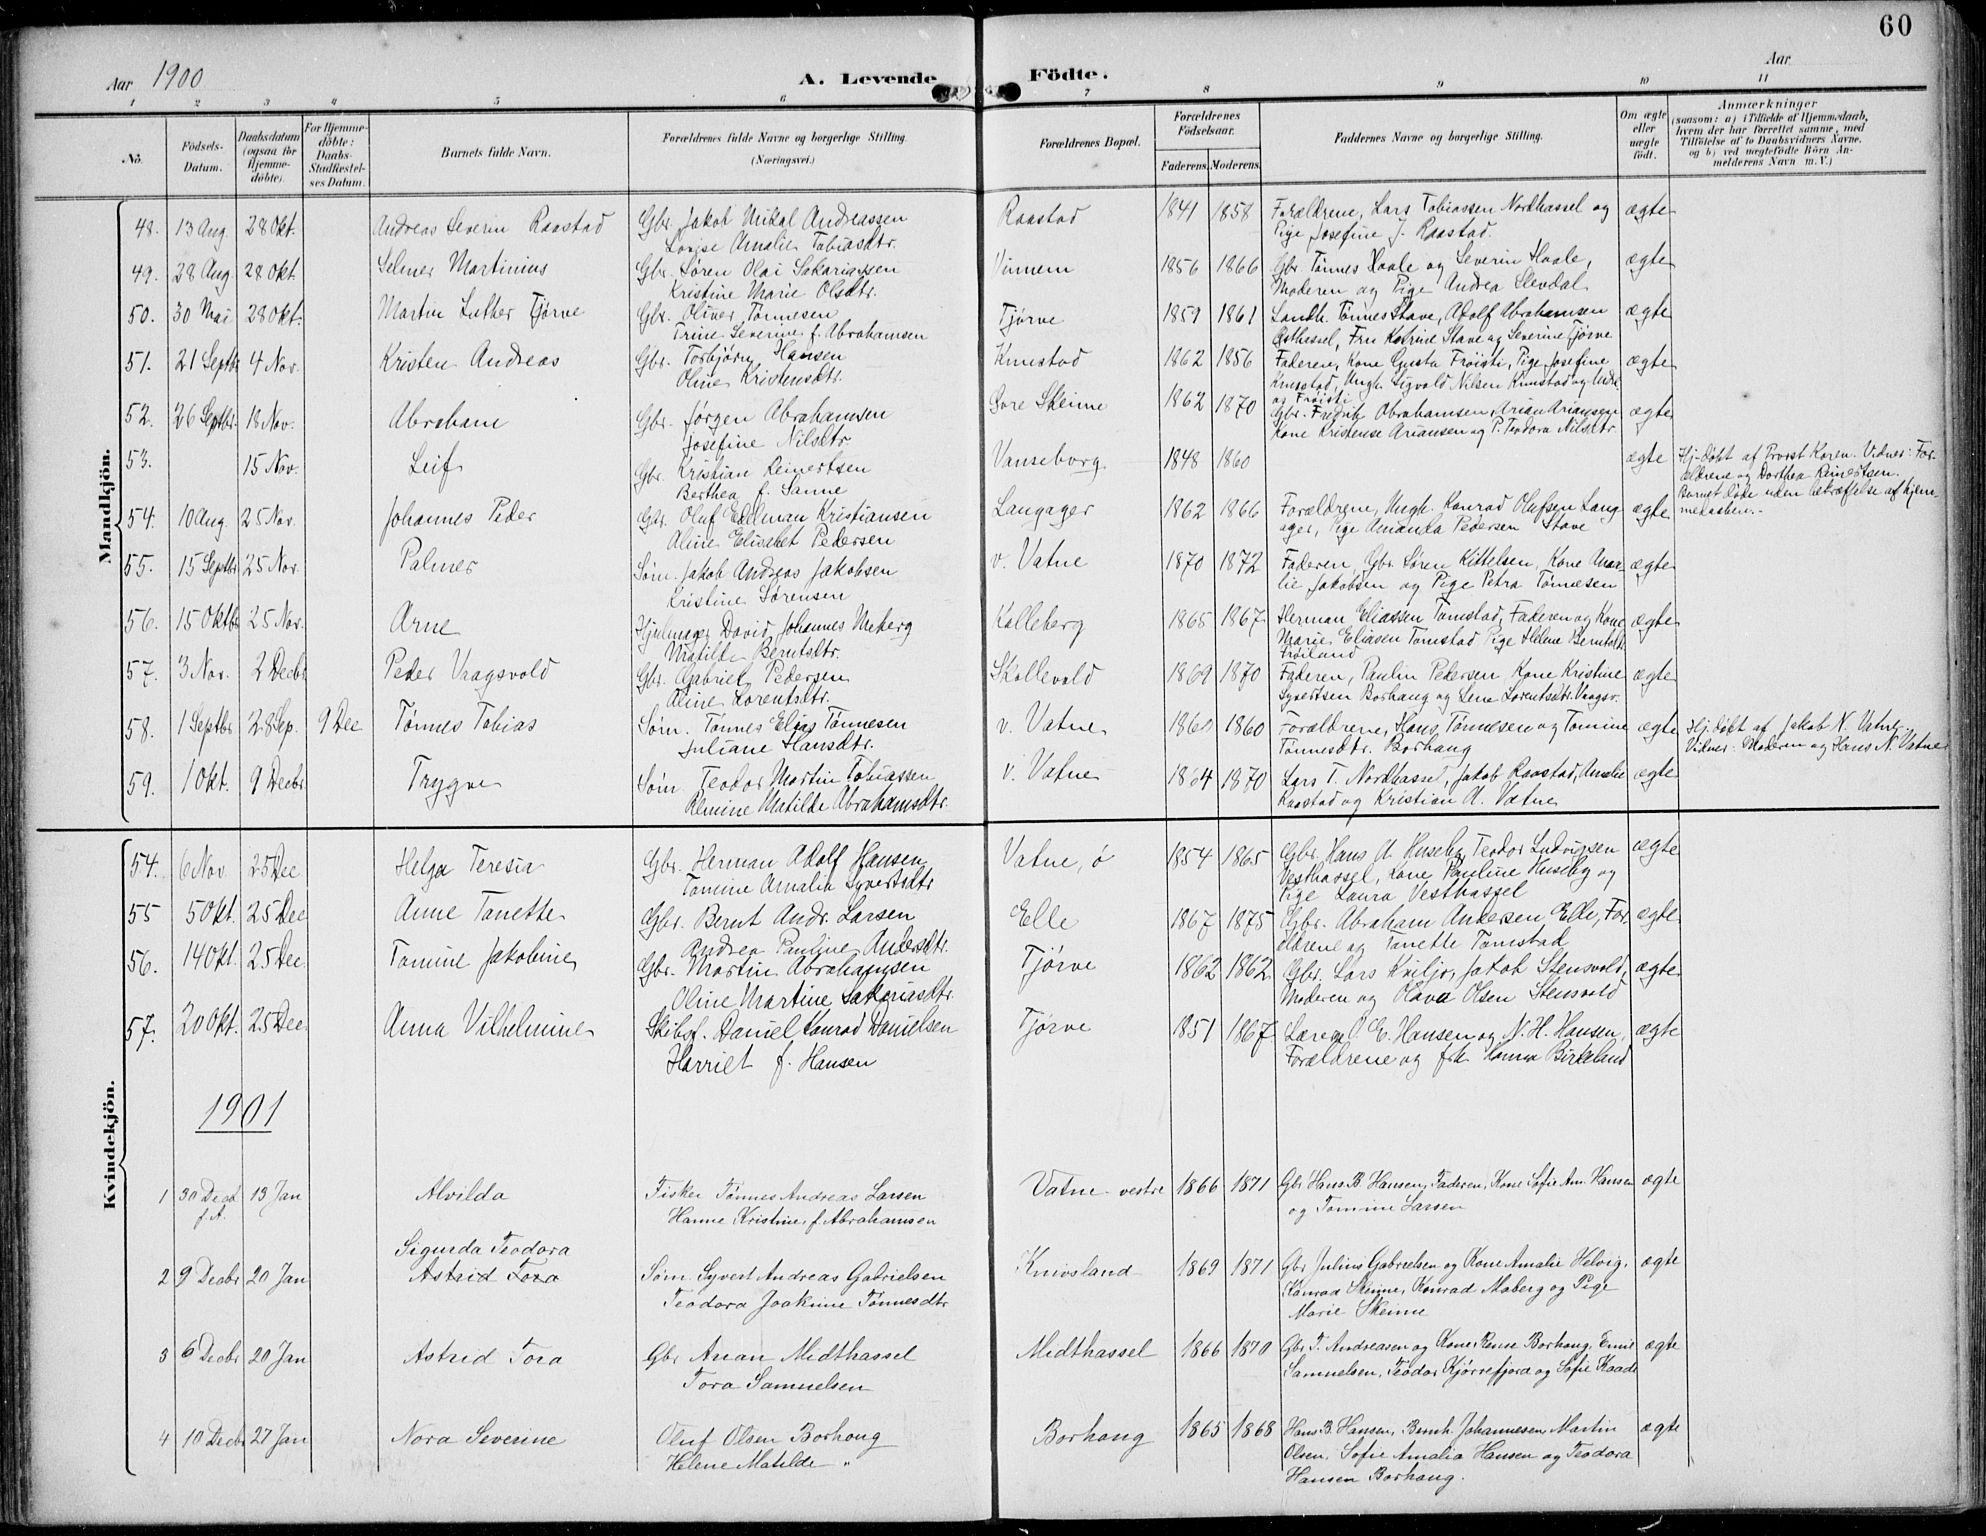 60
Aar 1900
A. Levende Födte.
Aar
1 2 3 4 5 6 7 8 9 10 11
No. Födsels-Datum. Daabsdatum (ogsaa for Hjemme-döbte). For Hjemme-döbte: Daabs-Stadfæstelses Datum. Barnets fulde Navn. Forældrenes fulde Navne og borgerlige Stilling (Næringsvei.) Forældrenes Bopæl. Forældrenes Födselsaar. Faderens Moderens. Faddernes Navne og borgerlige Stilling. Om ægte eller uægte födt. Anmærkninger (saasom: a) i Tilfælde af Hjemmedaab, hvem der har forrettet samme, med Tilföielse af to Daabsvidners Navne, og b) ved uægtefödte Börn Anmelderens Navn m. V.)
Mandkjön.
48. 13 Aug. 28 Okt. Andreas Severin Raastad Gbr. Jakob Mikal Andreassen Raastad 1841 1858 Forældrene, Lars Tobiassen Nordhassel og ægte
Lovise Amalie Tobiasdtr. Pige Josefine J. Raastad.
49. 28 Aug 28 Okt Selmer Martinius Gbr. Søren Olai Sakariassen Vinnem 1856 1866 Gbr Tønnes Haale og Severin Haale, ægte
Kristine Marie Olsdtr. Moderen og Pige Andrea Slevdal
50. 30 Mai 28 Okt. Martin Luther Tjørve Gbr. Oliver Tønnesen Tjørve 1859 1861 Landh. Tønnes Stave, Adolf Abrahamsen ægte
Trine Severine f. Abrahamsen Østhassel, Fru Katrine Stave og Severine Tjørve
51. 21 Septbr 4 Nov. Kristen Andreas Gbr. Torbjørn Hansen Kimstad 1862 1856 Faderen, Kone Gusta Frøisti, Pige Josefine ægte
Oline Kristensdtr. Kimstad, Ungk. Sigvald Nilsen Kimstad og
og Frøisti
52. 26 Septbr. 18 Nov. Abraham Gbr. Jørgen Abrahamsen Øore Skeime 1862 1870 Gbr. Fredrik Abrahamsen, Arian Ariansen ægte
Josefine Nilsdtr Kone Kristense Ariansen og P. Teodora Nilsdtr
53. 15 Nov. Leif Gbr. Kristian Reinertsen Vanseborg 1848 1860 ægte Hj-døbt af Provst Koren. Vidner: For-
Berthea f. Sanne ældrene og Dorthea Reinertsen.
Barnet døde uden bekræftelse af hjem-
medaaben.
54. 10 Aug. 25 Nov. Johannes Peder Gbr. Oluf Edelman Kristiansen Langager 1862 1866 Forældrene, Ungk. Konrad Olufsen Lang- ægte
Aline Elisabet Pedersen ager, Pige Amanda Pedersen Stave
55. 15 Septbr 25 Nov. Palmer Søm. Jakob Andreas Jakobsen v. Vatne 1870 1872 Faderen, Gbr. Søren Kittelsen, Kone Ama- ægte
Kristine Sørensen lie Jakobsen og Pige Petra Tønnesen
56. 15 Oktbr 25 Nov. Arne Hjulmager David Johannes Meberg Kalleberg 1865 1867 Herman Eliassen Tomstad, Faderen og Kone ægte
Matilde Berntsdtr. Marie Eliasen Tomstad Pige Helene Berntsdtr
Frøiland
57. 3 Nov. 2 Decbr Peder Vragsvold Gbr. Gabriel Pedersen Skollevold 1869 1870 Faderen, Paulin Pedersen Kone Kristine ægte
Aline Lorentsdtr. Syvertsen Borhaug og Lene Lorentsdtr. Vragsv.
58. 1 Septbr 28 Sep. 9 Dec Tønnes Tobias Søm. Tønnes Elias Tønnesen v. Vatne 1860 Forældrene, Hans Tønnesen og Tomine ægte Hj. døbt af Jakob N. Vatne.
Juliane Hansdtr. Tønnesdtr. Borhaug Vidner: Moderen og Hans N. Vatne
59. 1 Okt. 9 Decbr. Trygve Søm. Teodor Martin Tobiassen v. Vatne 1864 1870 Lars T. Nordhassel, Jakob Raastad, Amalie ægte
Elmine Matilde Abrahamsdtr. Raastad og Kristian A. Vatne
Kvindekjön.
54. 6 Nov. 25 Dec Helga Teresia Gbr. Herman Adolf Hansen Vatne, ø 1854 1865 Gbr. Hans A. Huseby, Teodor Ludvigsen ægte
Tomine Amalia Syvertsdtr Vesthassel, Kone Pauline Huseby og
Pige Laura Vesthassel
55 5 Okt. 25 Dec Anne Tanette Gbr. Bernt Andr. Larsen Elle 1867 1875 Gbr. Abraham Andersen Elle, For- ægte
Andrea Pauline Andersdtr. ældrene og Tanette Tomstad
56. 14 Okt. 25 Dec. Tomine Jakobine Gbr. Martin Abrahamsen Tjørve 1862 1862 Gbr. Lars Kviljo, Jakob Stensvold, ægte
Oline Martine Sakariasdtr. Moderen og Olava Olsen Stensvold
57. 20 Okt. 25 Dec. Anna Vilhelmine Skibsf. Daniel Konrad Danielsen Tjørve 1851 1867 Lærer O. E. Hansen og N. H. Hansen, ægte
Harriet f. Hansen Forældrene og frk Hanna Birkeland
1901
1 30 Decbr 13 Jan Alvilda Fisker Tønnes Andreas Larsen Vatne vestre 1866 1871 Gbr Hans B Hansen, Faderen, Kone Sofie Am. Hansen ægte
f. A. Hanne Kristine f. Abrahamsen og Tomine Larsen
Sigurda Teodora
2 9 Decbr 20 Jan Astrid Tora Søm. Syvert Andreas Gabrielsen Knivsland 1869 1871 Gbr Julius Gabrielsen og Kone Amalie Helvig, ægte
Teodora Joakime Tønnesdtr Konrad Skeime, Konrad Moberg og Pige
Marie Skeime
3 6 Decbr 20 Jan Astrid Tora Gbr Arian Midthassel Midthassel 1866 1870 Gbr T. Andreasen og Kone Rense Borhaug, Emil ægte
Tora Samuelsen Samuelsen, Teodor Kjørrefjord og Sofie Kaade
4 10 Decbr 27 Jan Nora Severine Oluf Olsen Borhaug Borhaug 1865 1868 Hans B. Hansen, Bernh. Johannesen Martin ægte
Helene Matilde " Olsen, Sofie Amalia Hansen og Teodora
Hansen Borhaug.